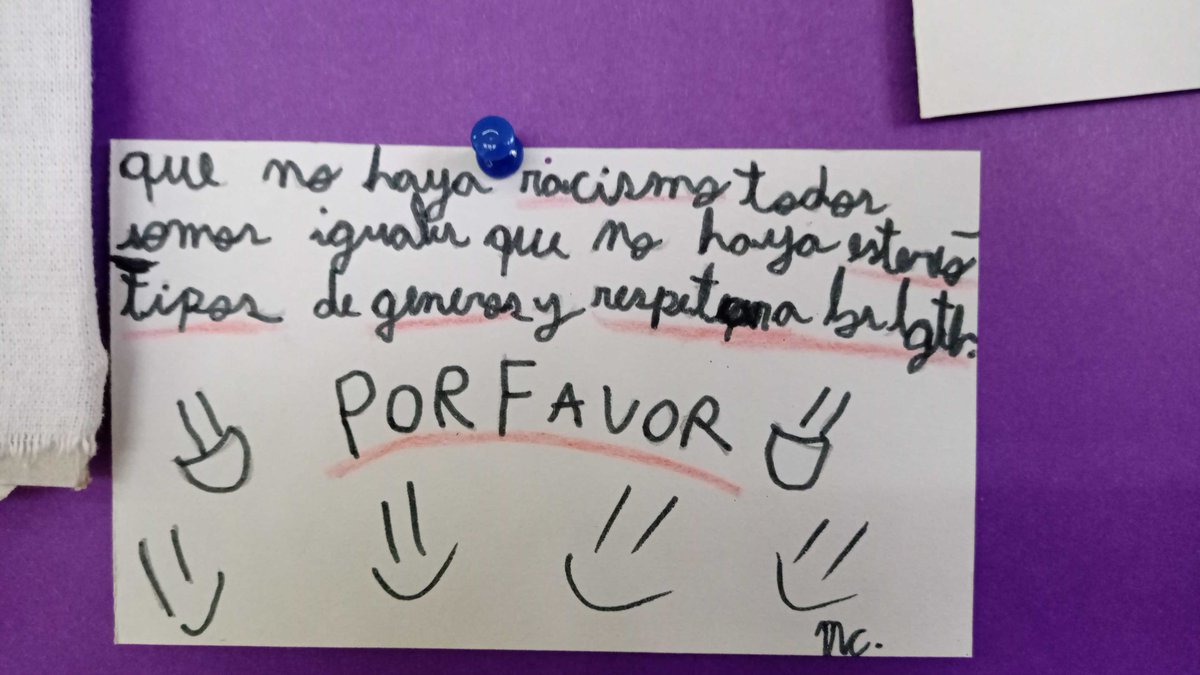 que no haya racismo todos
somos iguales que no haya estereo-
tipos de generos y respeten a los lgtb.
POR FAVOR
MC.